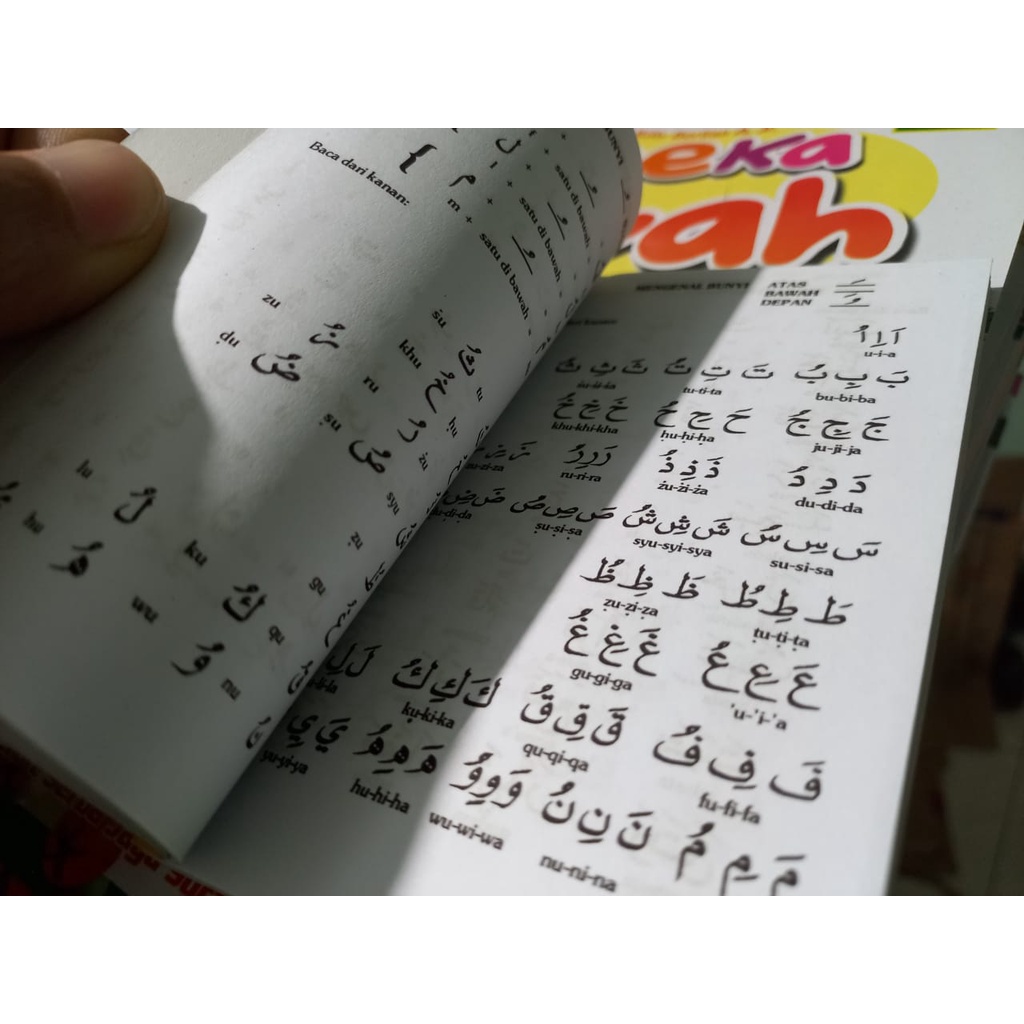 BUNYI
ل + satu di bawah
ا + satu di bawah
م m + satu di bawah =
Baca dari kanan:
ثُ زُ
su zu
خُ ضُ
khu ḍu
رُ
ru
صُ
ṣu
لُ
lu
كُ
ku
هُ
hu
وُ
wu
tu
ḥu
żu
syu
ẓu
gu
qu
nu
eka
rah
MENGENAL BUNYI
ATAS
BAWAH
DEPAN
اَ اِ اُ
u-i-a
بَ بِ بُ تَ تِ تُ ثَ ثِ ثُ
bu-bi-ba tu-ti-ta
جَ جِ جُ حَ حِ حُ خَ خِ خُ
ju-ji-ja ḥu-ḥi-ḥa khu-khi-kha
دَ دِ دُ ذَ ذِ ذُ رَ رِ رُ زَ زِ
du-di-da żu-żi-ża ru-ri-ra zi-za
سَ سِ سُ شَ شِ شُ صَ صِ صُ ضَ ضِ
su-si-sa syu-syi-sya ṣu-ṣi-ṣa ḍi-ḍa
طَ طِ طُ ظَ ظِ ظُ
ṭu-ṭi-ṭa ẓu-ẓi-ẓa
عَ عِ عُ غَ غِ غُ
'u-'i-'a gu-gi-ga
فَ فِ فُ قَ قِ قُ كَ كِ كُ لَ لِ
fu-fi-fa qu-qi-qa ku-ki-ka li-la
مَ مِ مُ نَ نِ نُ وَ وِ وُ هَ هِ هُ يَ يِ
nu-ni-na wu-wi-wa hu-hi-ha yu-yi-ya